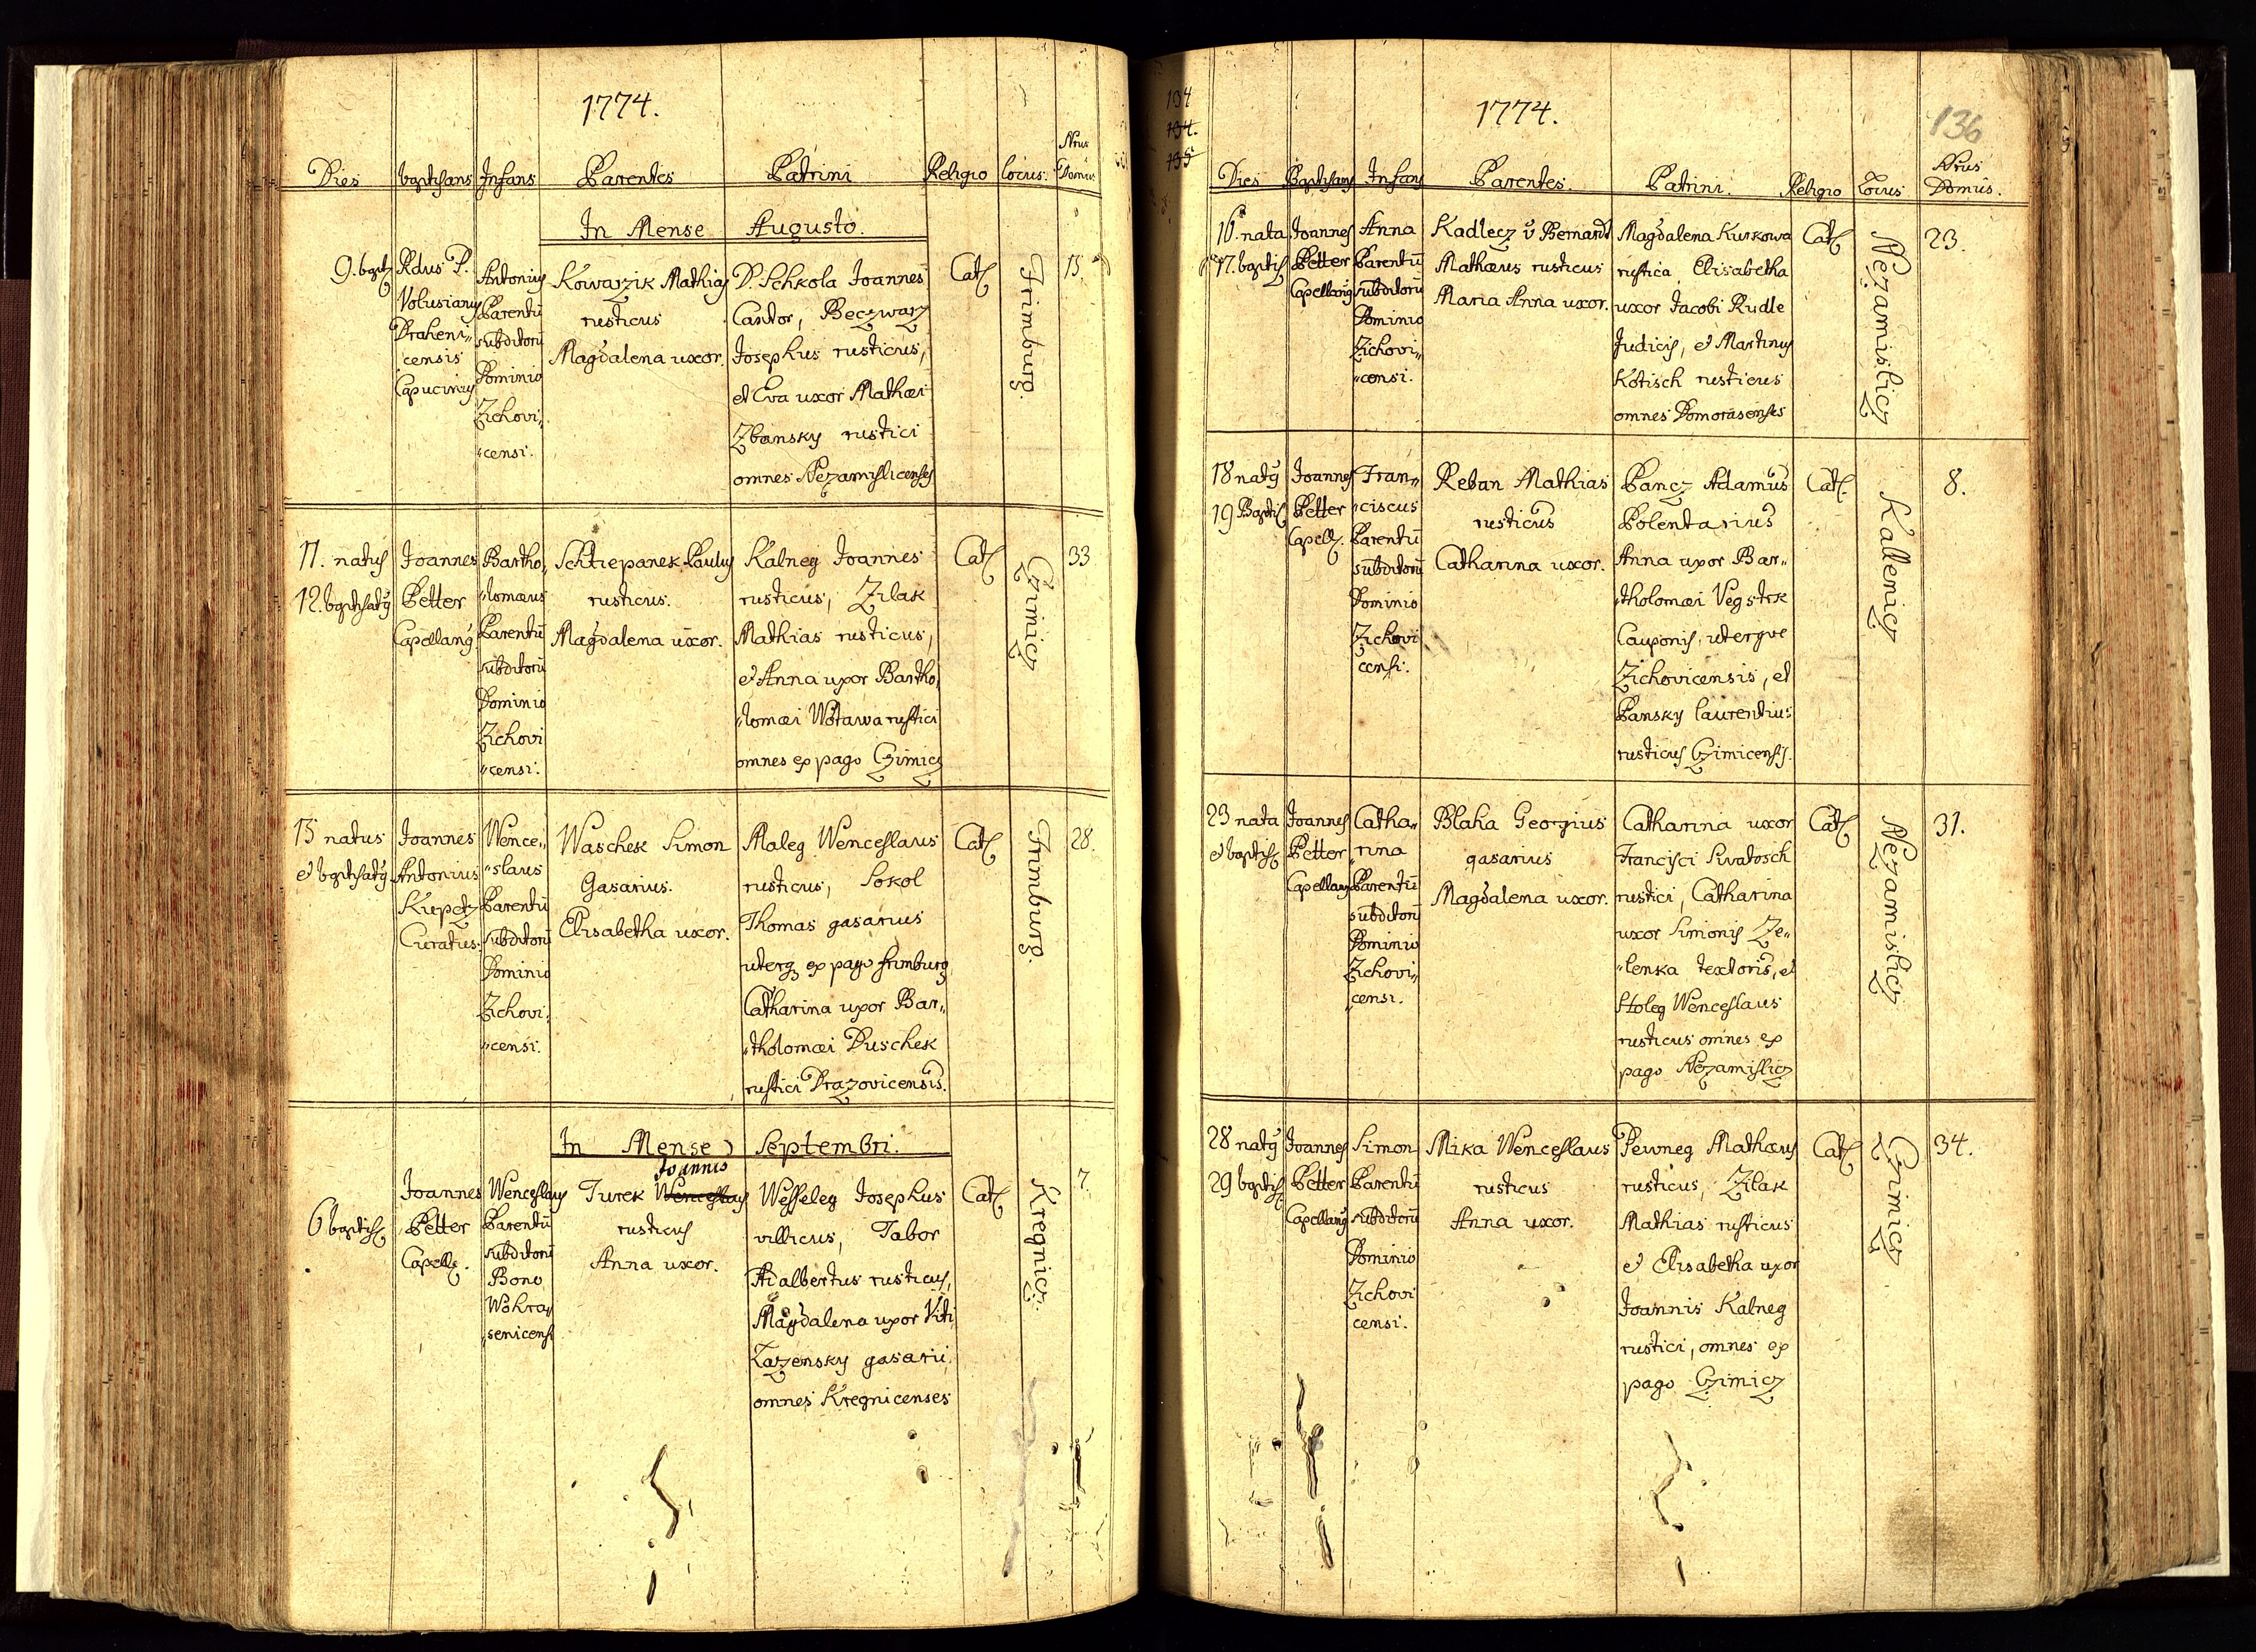 1774.
Dies
baptisans
Infans
Parentes
Patrini
Religio
Locus.
Nrus
Domus
In Mense Augusto.
9. bapt
Rdus P.
Volusiany
Draheni„
censis
Capuciny
Antoniy
Parentū
subditorū
Dominio
Zichovi„
„censi.
Kowarzik Mathias
rusticus
Magdalena uxor.
D. Schkola Joannes
Cantor, Beczwarz
Josephus rusticus,
et Eva uxor Mathæi
Zbansky rustici
omnes Nezamislicenses
Cat
Frimburg.
15.
11. natus
12. baptisaty
Joannes
Petter
Capellany
Bartho„
„lomæus
Parentū
subditorū
Dominio
Zichovi
„censi.
Schtiepanek Pauly
rusticus.
Magdalena uxor.
Kalneg Joannes
rusticus, Zilak
Mathias rusticus,
et Anna uxor Bartho„
„lomæi Wotawa rustici
omnes ex pago Czimicz
Cat
Czimicz
33
15 natus
et baptisaty
Joannes
Antonius
Kupetz
Curatus.
Wence„
„slaus
Parentū
subditorū
Dominio
Zichovi„
„censi.
Waschek Simon
Gasarius.
Elisabetha uxor.
Maleg Wenceslaus
rusticus, Sokol
Thomas gasarius
uterq ex pago frimburg
Catharina uxor Bar„
„tholomæi Duschek
rustici Drazovicensis.
Cat
Frimburg.
28.
In Mense Septembri.
6 baptis
Joannes
Petter
Capell.
Wenceslaus
Parentū
subditorū
Bono
Wohra„
„senicensi
Joannis
Turek Wenceslaus
rusticus
Anna uxor.
Wesseleg Josephus
villicus, Tabor
Adalbertus rusticus,
Magdalena uxor Viti
Lazensky gasarii,
omnes Kregnicenses
Cat
Kregnicz.
7.
134
134.
135
1774.
136
Dies
Baptisans
Infans
Parentes.
Patrini.
Religio
Locus
Nrus
Domus.
16. nata
17. baptis
Joannes
Petter
Capellany
Anna
Parentū
subditorū
Dominio
Zichovi„
„censi.
Kadlecz v Bernardt
Mathæus rusticus
Maria Anna uxor.
Magdalena Kurkowa
rustica Elisabetha
uxor Jacobi Rudle
Judicis, et Martiny
Kotisch rusticus
omnes Domorasenses
Cat
Nezamislicz
23.
18 naty
19 Baptis
Joannes
Petter
Capell.
Fran„
„ciscus
Parentū
subditorū
Dominio
Zichovi
censi.
Reban Mathias
rusticus
Catharina uxor.
Pancz Adamus
Polentarius
Anna uxor Bar„
„tholomæi Vegstrk
Cauponis, uterque
Zichovicensis, et
Pansky laurentius
rusticus Czimicensis.
Cat.
Kallenicz
8.
23 nata
et baptis
Joannes
Petter
Capellany
Catha„
„rina
Parentū
subditorū
Dominio
Zichovi„
„censi.
Blaha Georgius
gasarius
Magdalena uxor.
Catharina uxor
Francisci Swatosch
rustici, Catharina
uxor Simonis Ze„
„lenka textoris, et
Holeg Wenceslaus
rusticus omnes ex
pago Nezamislicz
Cat
Nezamislicz
31.
28 naty
29 baptis
Joannes
Petter
Capellany
Simon
Parentū
subditorū
Dominio
Zichovi
censi.
Mika Wenceslaus
rusticus
Anna uxor.
Pewneg Mathæus
rusticus, Zilak
Mathias rusticus
et Elisabetha uxor
Joannis Kalneg
rustici, omnes ex
pago Czimicz
Cat
Czimicz
34.